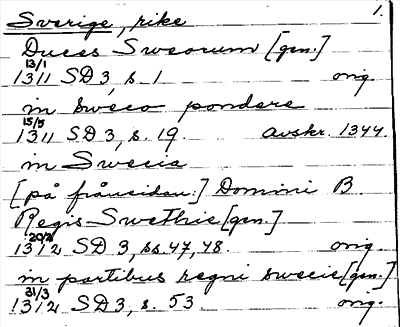 Sverige, rike 1.
Duces Sweorum [gen.]
13/1
1311 SD 3, s. 1 orig.
in sweco pondere
15/5
1311 SD 3, s. 19. avskr. 1344.
in Swecia
[på frånsidan:] Domini B.
Regis Swethie [gen.]
1312 SD 3, ss. 47, 48. orig.
in partibus regni swecie [gen.]
31/3
1312 SD 3, s. 53. orig.